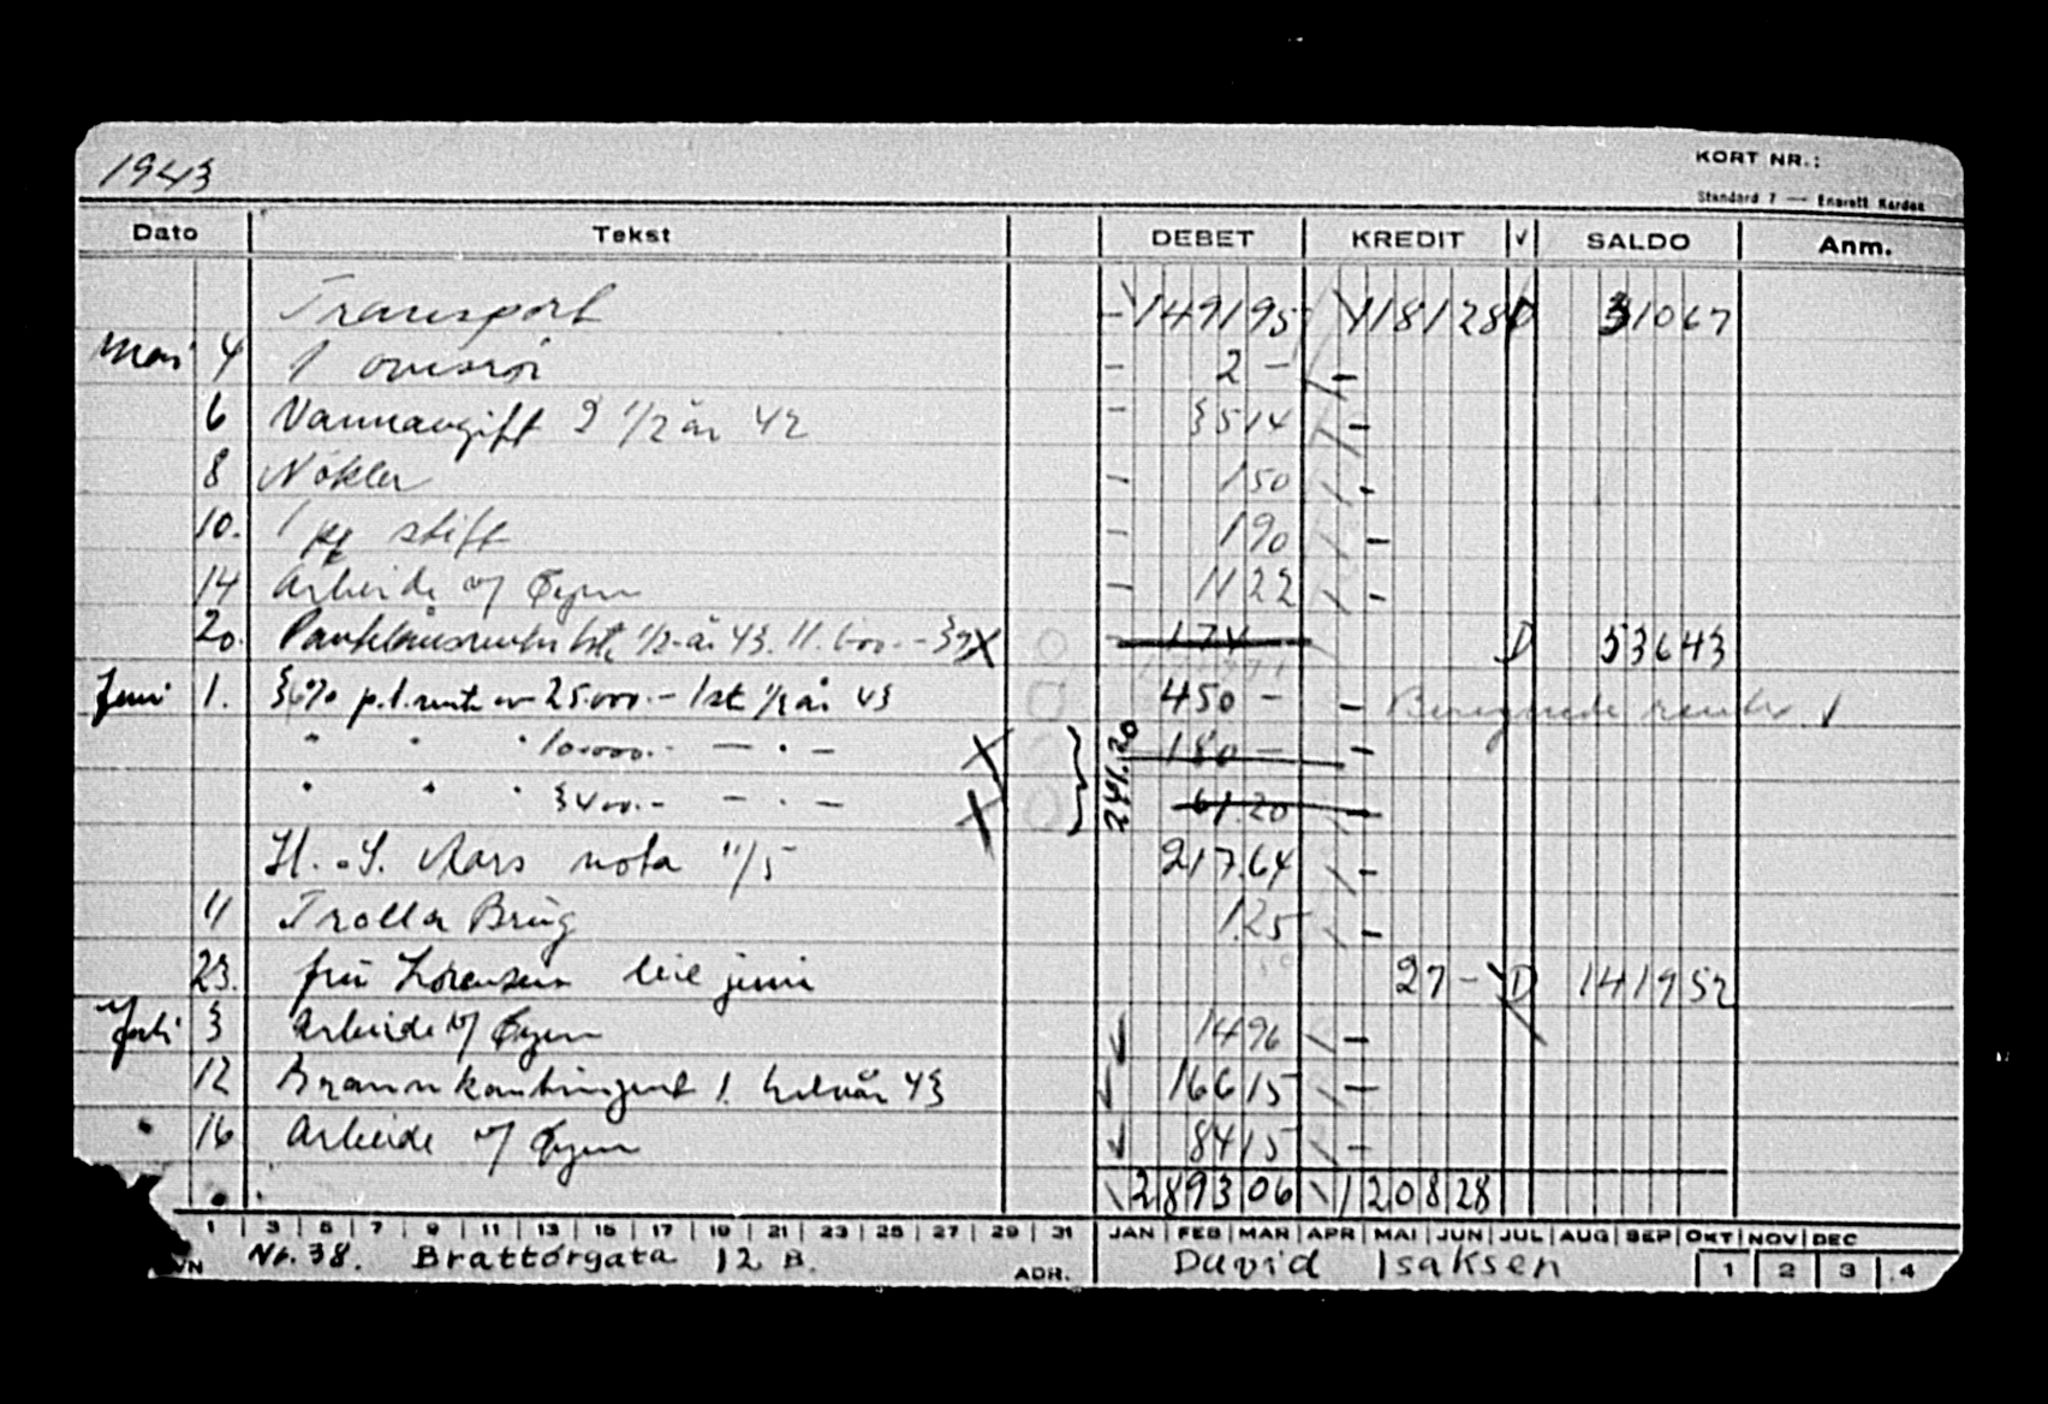 1943
KORT NR.:
Standard 7 — Enerett Kardex
Dato Tekst DEBET KREDIT √ SALDO Anm.
Transport 1491 95 1181 28 D 310 67
Mai 4 1 2 -
6 Vannavgift 2 1/2 år 42 35 14
8 Nøkler 1 50
10. 1 pk stift 1 90
14 Arbeide v/ Øyen 11 22
20. Pantelånsrenter 1ste 1/2-år 43. 11.600.- 3% 174 D 536 43
Juni 1. 3,6% p.l.rente av 25.000.- 1ste 1/2 år 43 450 - Beregnede renter √
" " " 10.000.- — " — 180 -
" " " 3400.- — " — 61.20
241.20
H. . S. Aars nota 11/5 217.64
11 Trolla Brug 1.25
23. fru Lorensen leie juni 27 - D 1419 52
Juli 3 Arbeide v/ Øyen 14 96
12 Brannkontingent 1. halvår 43 166 15
" 16 Arbeide v/ Øyen 84 15
2893 06 1208 28
1 3 5 7 9 11 13 15 17 19 21 23 25 27 29 31 JAN FEB MAR APR MAI JUN JUL AUG SEP OKT NOV DEC
VN Nr. 38. Brattørgata 12 B. ADR. David Isaksen 1 2 3 4